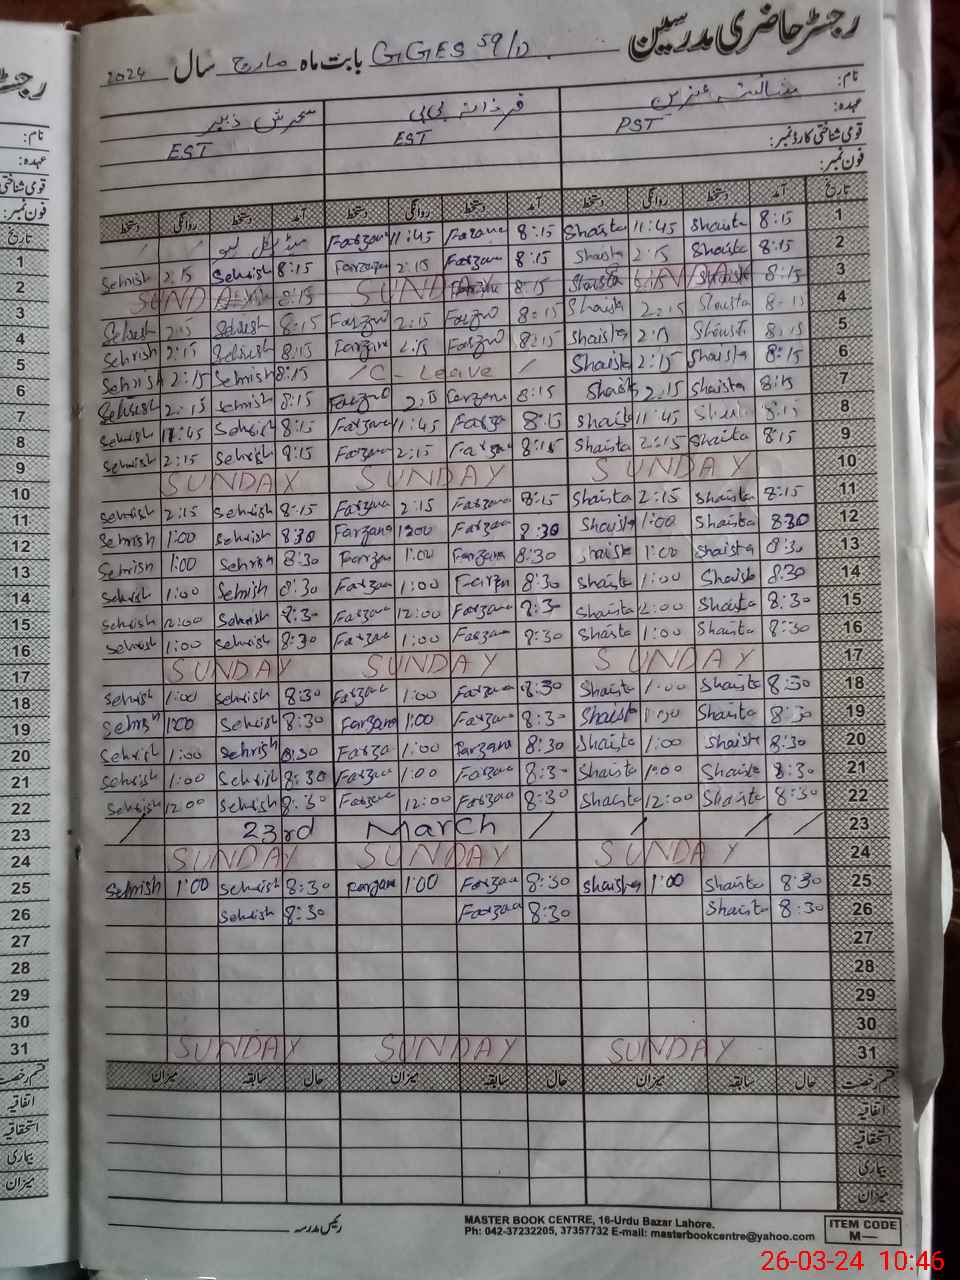 رجسٹر حاضری مدرسین
GGES 59/D بابت ماہ مارچ سال 2024
نام: شائستہ فرزانہ بی بی سحرش
عہدہ: PST EST EST
قومی شناختی کارڈ نمبر:
فون نمبر:
تاریخ آمد دستخط روانگی دستخط آمد دستخط روانگی دستخط آمد دستخط روانگی دستخط
Farzana 11:45 Farzana 8:15 Shaista 11:45 Shaista 8:15 1
Sehrish 2:15 Sehrish 8:15 Farzana 2:15 Farzana 8:15 Shaista 2:15 Shaista 8:15 2
SUNDAY 8:15 SUNDAY 8:15 Shaista SUNDAY Shaista 8:15 3
Sehrish 2:15 Sehrish 8:15 Farzana 2:15 Farzana 8:15 Shaista 2:15 Shaista 8:15 4
Sehrish 2:15 Sehrish 8:15 Farzana 2:15 Farzana 8:15 Shaista 2:15 Shaista 8:15 5
Sehrish 2:15 Sehrish 8:15 / C - Leave / Shaista 2:15 Shaista 8:15 6
Sehrish 2:15 Sehrish 8:15 Farzana 2:15 Farzana 8:15 Shaista 2:15 Shaista 8:15 7
Sehrish 11:45 Sehrish 8:15 Farzana 11:45 Farzana 8:15 Shaista 11:45 Shaista 8:15 8
Sehrish 2:15 Sehrish 8:15 Farzana 2:15 Farzana 8:15 Shaista 2:15 Shaista 8:15 9
SUNDAY SUNDAY SUNDAY 10
Sehrish 2:15 Sehrish 8:15 Farzana 2:15 Farzana 8:15 Shaista 2:15 Shaista 8:15 11
Sehrish 1:00 Sehrish 8:30 Farzana 1:00 Farzana 8:30 Shaista 1:00 Shaista 8:30 12
Sehrish 1:00 Sehrish 8:30 Farzana 1:00 Farzana 8:30 Shaista 1:00 Shaista 8:30 13
Sehrish 1:00 Sehrish 8:30 Farzana 1:00 Farzana 8:30 Shaista 1:00 Shaista 8:30 14
Sehrish 12:00 Sehrish 8:30 Farzana 12:00 Farzana 8:30 Shaista 12:00 Shaista 8:30 15
Sehrish 1:00 Sehrish 8:30 Farzana 1:00 Farzana 8:30 Shaista 1:00 Shaista 8:30 16
SUNDAY SUNDAY SUNDAY 17
Sehrish 1:00 Sehrish 8:30 Farzana 1:00 Farzana 8:30 Shaista 1:00 Shaista 8:30 18
Sehrish 1:00 Sehrish 8:30 Farzana 1:00 Farzana 8:30 Shaista 1:00 Shaista 8:30 19
Sehrish 1:00 Sehrish 8:30 Farzana 1:00 Farzana 8:30 Shaista 1:00 Shaista 8:30 20
Sehrish 1:00 Sehrish 8:30 Farzana 1:00 Farzana 8:30 Shaista 1:00 Shaista 8:30 21
Sehrish 12:00 Sehrish 8:30 Farzana 12:00 Farzana 8:30 Shaista 12:00 Shaista 8:30 22
/ 23rd March / / / / 23
SUNDAY SUNDAY SUNDAY 24
Sehrish 1:00 Sehrish 8:30 Farzana 1:00 Farzana 8:30 Shaista 1:00 Shaista 8:30 25
Sehrish 8:30 Farzana 8:30 Shaista 8:30 26
27
28
29
30
SUNDAY SUNDAY SUNDAY 31
قسم رخصت حال سابقہ میزان حال سابقہ میزان حال سابقہ میزان
اتفاقیہ
استحقاقیہ
بیماری
میزان
رئیس مدرسہ
MASTER BOOK CENTRE, 16-Urdu Bazar Lahore.
Ph: 042-37232205, 37357732 E-mail: masterbookcentre@yahoo.com
ITEM CODE
M—
26-03-24 10:46
نام:
عہدہ:
قومی شناختی
فون نمبر:
تاریخ
1
2
3
4
5
6
7
8
9
10
11
12
13
14
15
16
17
18
19
20
21
22
23
24
25
26
27
28
29
30
31
قسم رخصت
اتفاقیہ
استحقاقیہ
بیماری
میزان